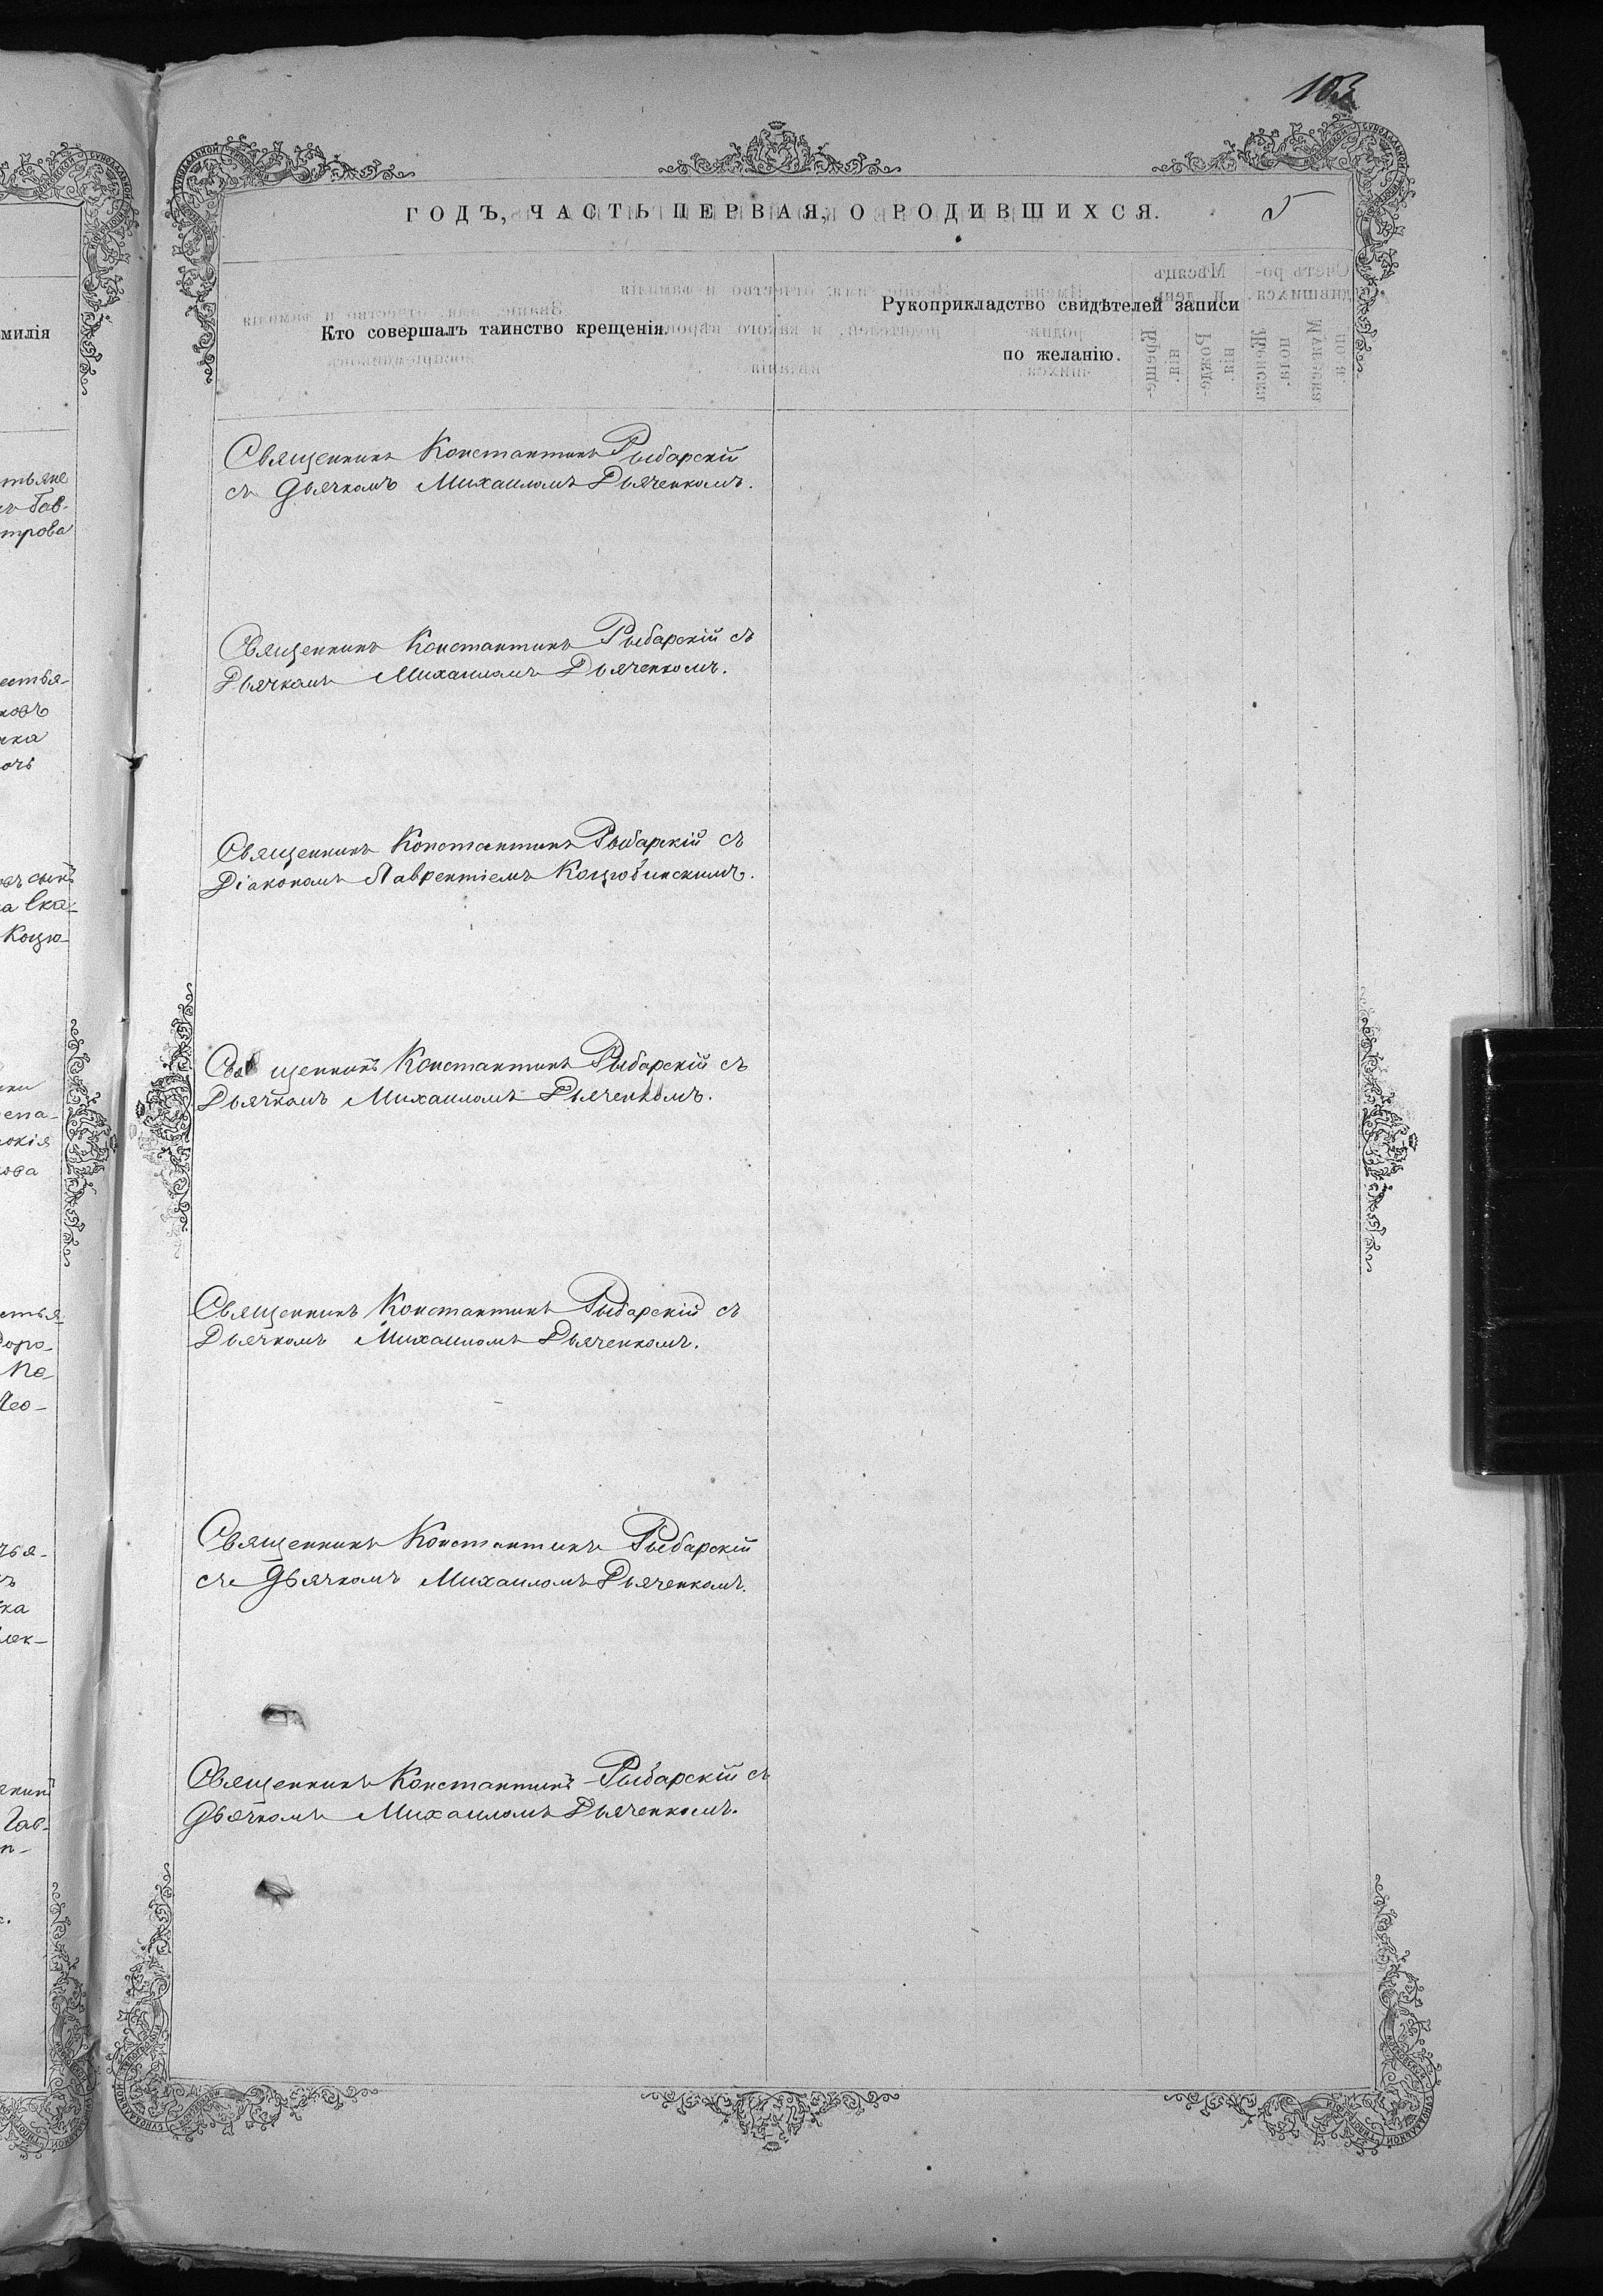 103
ГОДЪ, ЧАСТЬ ПЕРВАЯ, О РОДИВШИХСЯ.
5
Кто совершалъ таинство крещенія.
Рукоприкладство свидѣтелей записи
по желанію.
Священникъ Константинъ Рыбарскій
съ Дьячкомъ Михаиломъ Дьяченкомъ.
Священникъ Константинъ Рыбарскій съ
Дьячкомъ Михаиломъ Дьяченкомъ.
Священникъ Константинъ Рыбарскій съ
Діакономъ Лаврентіемъ Коцюбинскимъ.
Священникъ Константинъ Рыбарскій съ
Дьячкомъ Михаиломъ Дьяченкомъ.
Священникъ Константинъ Рыбарскій съ
Дьячкомъ Михаиломъ Дьяченкомъ.
Священникъ Константинъ Рыбарскій
съ Дьячкомъ Михаиломъ Дьяченкомъ.
Священникъ Константинъ Рыбарскій съ
Дьячкомъ Михаиломъ Дьяченкомъ.